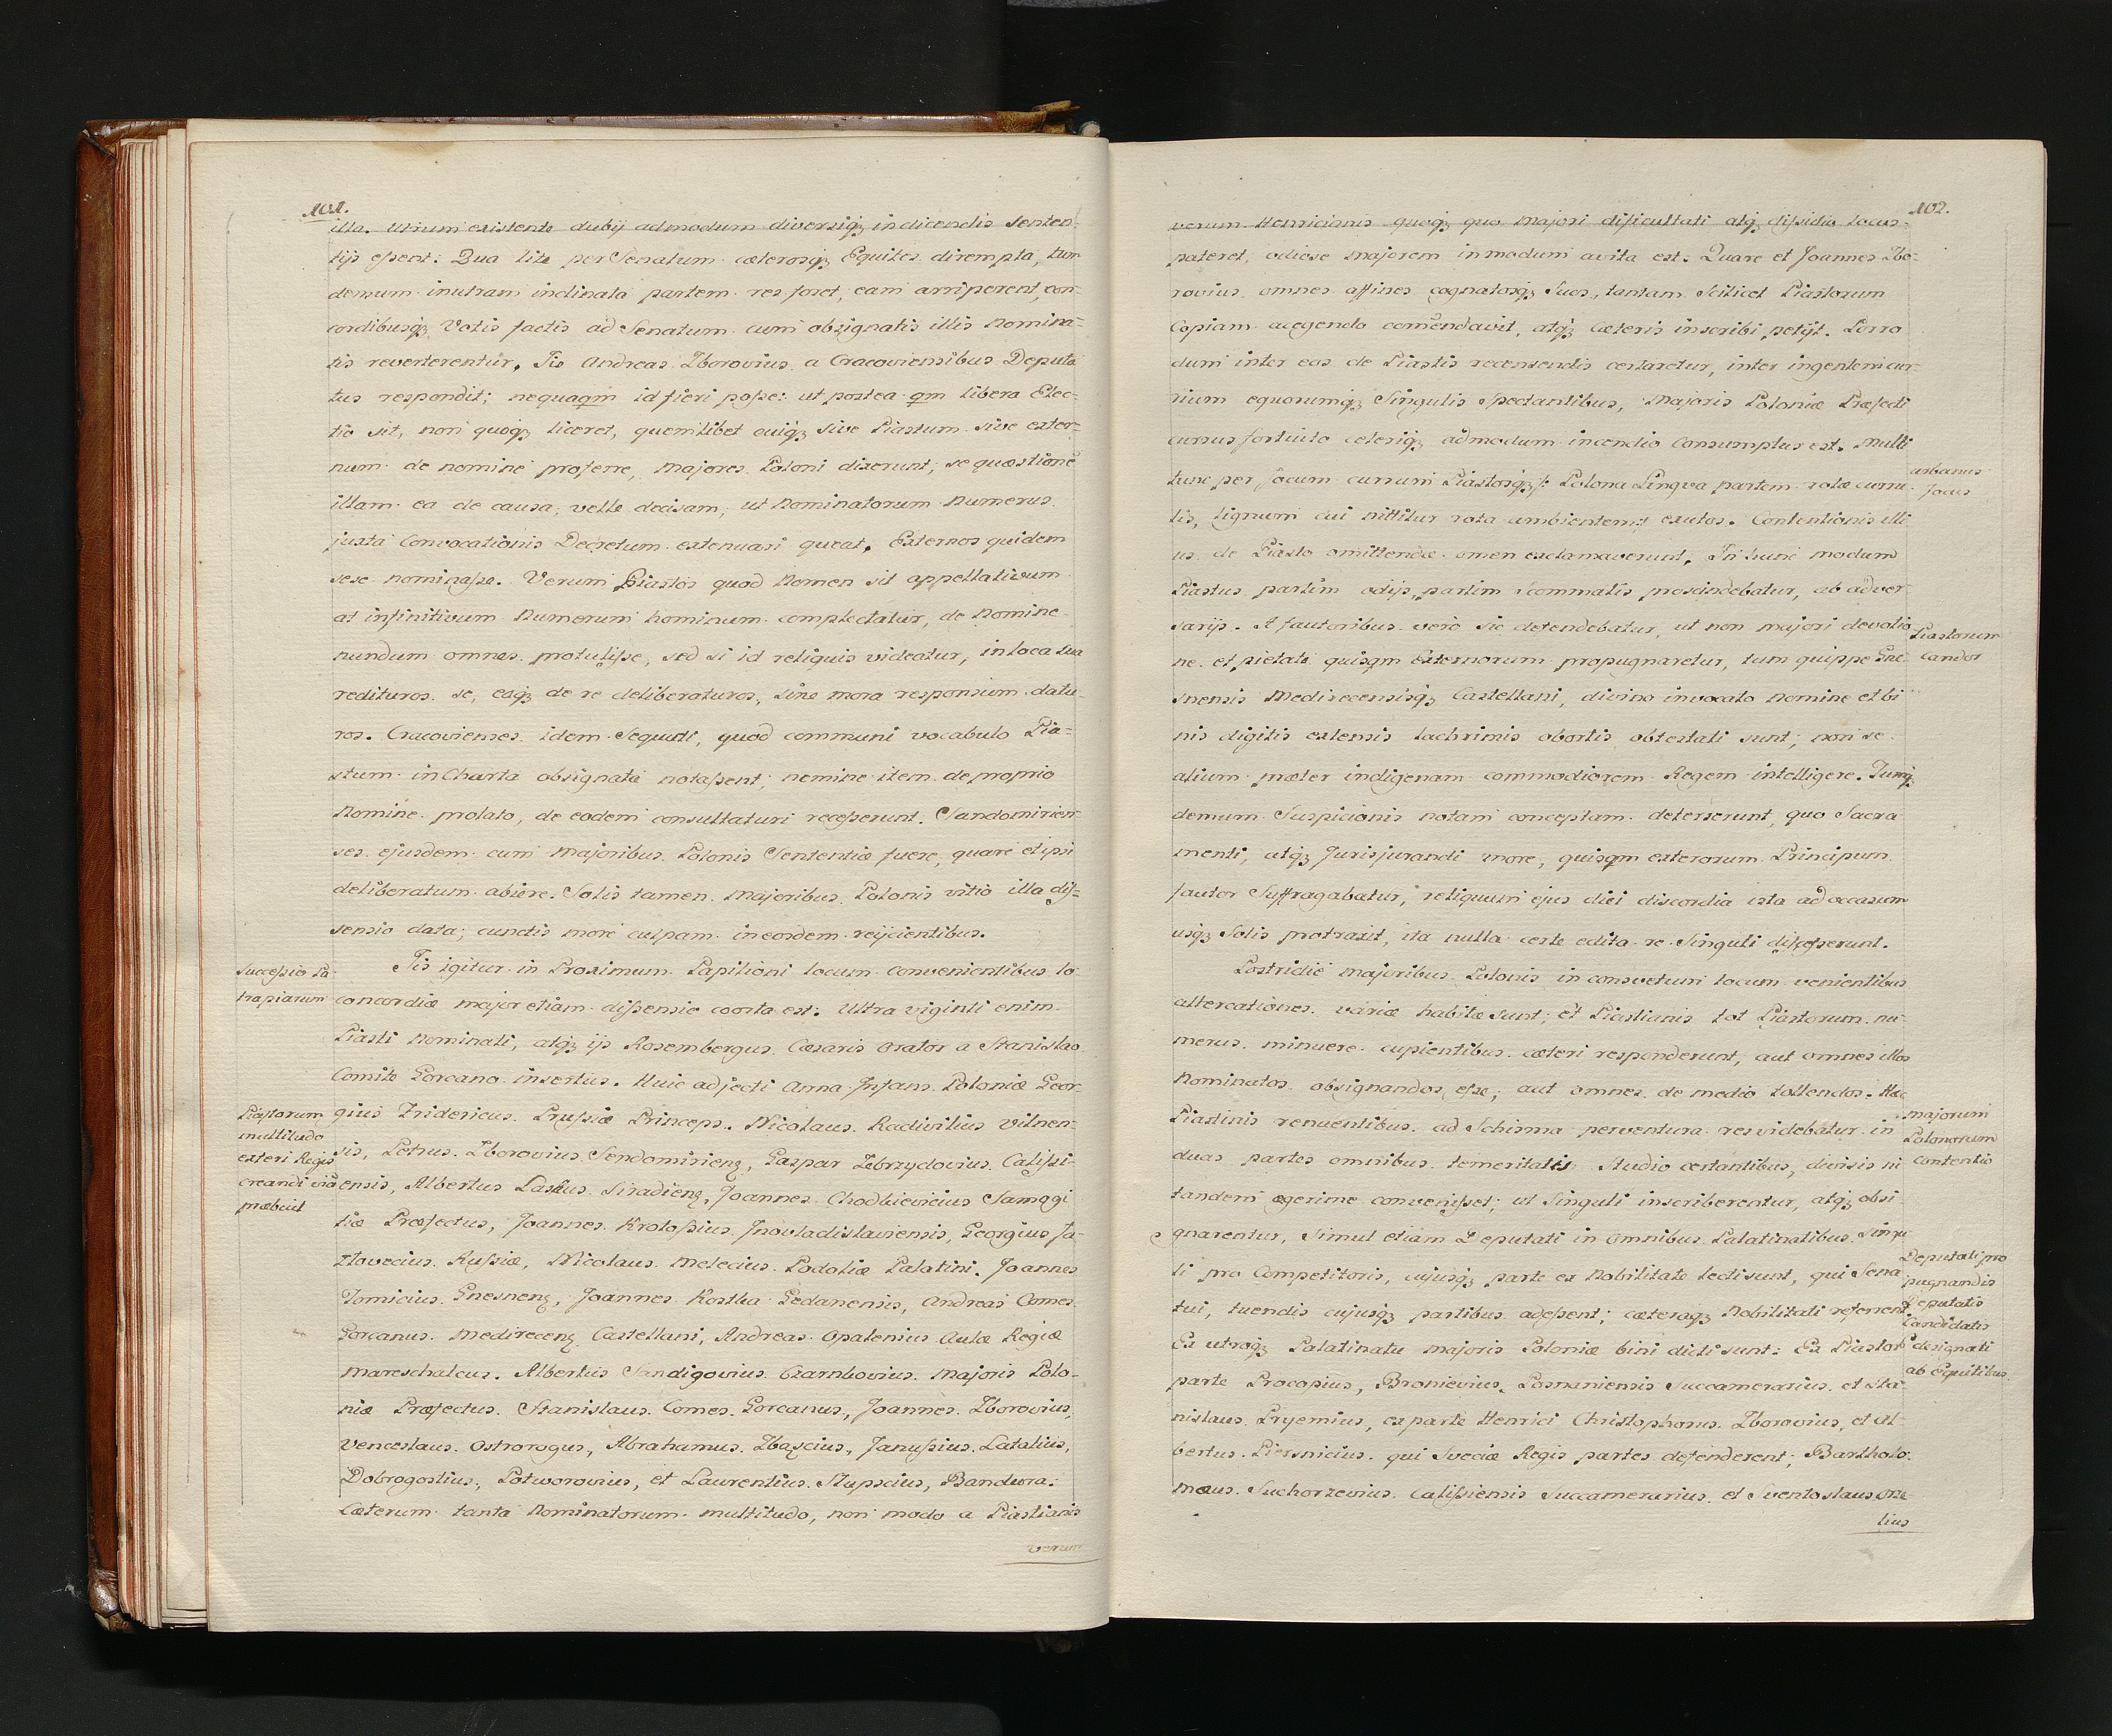 101.
illa. Utrum existente dubij admodum diversiq; in dicendis senten-
tijs essent: Qua lite per Senatum cæterosq; Equites dirempta, tum
demum inutram inclinata partem res foret, eam arriperent, con-
cordibusq; Votis factis ad Senatum cum obsignatis illis nomina-
tis reverterentur. Sic Andreas Zborovius a Cracoviensibus Deputa
tus respondit; nequaqm id fieri posse: ut postea qm libera Elec-
tio sit, non quoq; liceret, quemlibet cuiq; sive Piastum sive exter-
num de nomine proferre, Majores Poloni dixerunt; se quæstionē
illam ea de causa, velle decisam, ut nominatorum numerus
juxta Convocationis Decretum extenuari queat. Externos quidem
sese nominasse. Verum Piastos quod nomen sit appellativum
at infinitivum numerum hominum complectatur, de nomine
nundum omnes protulisse, sed si id reliquis videatur, in loca sua
redituros se, eaq; de re deliberaturos, sine mora responsum datu-
ros. Cracovienses idem Sequuti, quod communi vocabulo Pia-
stum in Charta obsignata notassent; nemine item de proprio
Nomine prolato, de eodem consultaturi recesserunt. Sandomirien-
ses ejusdem cum Majoribus Polonis Sententiæ fuere, quare et ipsi
deliberatum abiere. Solis tamen Majoribus Polonis vitio illa dis-
sensio data; cunctis more culpam in eosdem reijcientibus.
Successio Sa-
trapiarum
His igitur in Proximum Papilioni locum convenientibus lo-
co concordiæ major etiam dissensio coorta est: Ultra viginti enim
Piasti Nominati, atq; ijs Rosembergus Cæsaris Orator a Stanislao
Comite Gorcano insertus. Huic adjecti Anna Infans Poloniæ Geor-
Piastorum
multitudo
exteri Regis
creandi viā
præbuit
gius Fridericus Prussiæ Princeps. Nicolaus Radivilius Vilnen-
sis, Petrus Zborovius Sendomirienz, Gaspar Zebrzydovius Calissi-
ensis, Albertus Laskus Siradienz, Joannes Chodkievicius Samogi
tiæ Præfectus, Joannes Krotossius Inovladislaviensis, Georgius Ja-
zlovecius Russiæ, Nicolaus Melecius Podoliæ Palatini. Joannes
Tomicius Gnesnenz, Joannes Kostka Gedanensis, Andreas Comes
Gorcanus Medirecenz Castellani, Andreas Opalenius Aulæ Regiæ
Mareschalcus. Albertus Sandigovius Czarnkovius Majoris Polo-
niæ Præfectus. Stanislaus Comes Gorcanus, Joannes Zborovius,
Venceslaus Ostrorogus, Abrahamus Zbascius, Janussius Latalius,
Dobrogostius, Potworovius, et Laurentius Slupscius, Bandura:
Cæterum tanta Nominatorum multitudo, non modo a Piastianis
verum
102.
verum Henricianis quoq; quo majori dificultati atq; dissidio locus
pateret, odiose majorem inmodum avita est: Quare et Joannes Zbo-
rovius omnes affines cognatosq; Suos, tantam Scilicet Piastorum
Copiam acegendo comendavit, atq; Cæteris inscribi petijt. Porro
dum inter eos de Piastis recensendis certaretur, inter ingentem cur-
rium equorumq; Singulis Spectantibus, Majoris Poloniæ Præfecti
currus fortuito celeriq; admodum incendio Consumptus est. Multi
tunc per Jocum currum Piastosq; /: Polona Lingva partem rotæ curru-
lis, lignum cui nittitur rota ambientem :/ exutos. Contentionis illi
us de Piasto omittendæ omen exclamaverunt. In hunc modum
urbanus
Jocus
Piastus partim odijs, partim Scommatis proscindebatur, ab adver-
sarijs. A fautoribus vero sic defendebatur, ut non majori devotio
ne et pietate quisqm Externorum propugnaretur, tum quippe Gne
Piastorum
Candor
snensis Medirecensisq; Castellani, divino invocato Nomine et bi
nis digitis extensis lachrimis obortis obtestati sunt; non se
alium præter indigenam commodiorem Regem intelligere. Tumq;
demum Suspicionis notam conceptam deterserunt, quo Sacra
menti, atq; Jurisjurandi more, quisqm exterorum Principum
fautor Suffragabatur, reliquum ejus diei discordia ista ad occasum
usq; Solis protraxit, ita nulla certe edita re Singuli discesserunt.
Postridie Majoribus Polonis in consvetum locum venientibus
altercationes variæ habitæ sunt; et Piastianis tot Piastorum nu-
merus minuere cupientibus cæteri responderunt, aut omnes illos
Nominatos obsignandos esse; aut omnes de medio tollendos. Hac
Piastinis renuentibus ad Schisma perventura res videbatur in
duas partes omnibus temeritatis Studio certantibus, divisis ni
majorum
Polonorum
contentio
tandem ægerime convenisset; ut Singuli inscriberentur, atq; obsi
gnarentur, Simul etiam Deputati in omnibus Palatinatibus Singu
li pro Competitoris, cujusq; parte ex Nobilitate lecti sunt, qui Sena
tui, tuendis cujusq; partibus adessent; cæteraq; Nobilitati referrent
Deputati pro
pugnandis
Deputatis
Candidatis
designati
ab Equitibus
Ex utroq; Palatinatu Majoris Poloniæ bini dicti sunt: Ex Piastor
parte Procopius, Bronievius, Posnaniensis Succamerarius et Sta-
nislaus Pryemius, ex parte Henrici Christophorus Zborovius, et Al-
bertus Piersnicius qui Sveciæ Regis partes defenderent; Bartholo-
mæus Suchorzevius Calissiensis Succamerarius et Sventoslaus Orze
lius